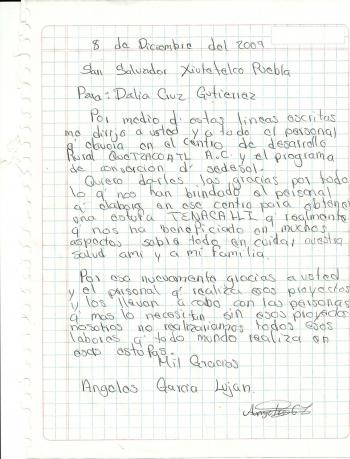 8 de Diciembre del 2009
San Salvador Xiutetelco Puebla
Para: Dalia Cruz Gutierrez
Por medio d' estas lineas escritas
me dirijo a usted y a todo el personal
q' elavora en el centro de desarrollo
Rural QUETZALCOATL A.C. y el programa
de conversion d' sedesol.
Quiero darles las gracias por todo
lo q' nos han brindado el personal
q' elabora en ese centro para obtener
una estufa TENACALLI q' realmente
q' nos ha beneficiado en muchos
aspectos sobre todo en cuidar nuestra
salud ami y a mi familia.
Por eso nuevamente gracias a usted
y el personal q' realiza esos proyectos
y los llevan a cabo con las personas
q' mas lo necesitan sin esos proyectos
nosotros no realizariamos todos esos
labores q' todo mundo realiza en
estufas.
Mil Gracias
Angeles Garcia Lujan.